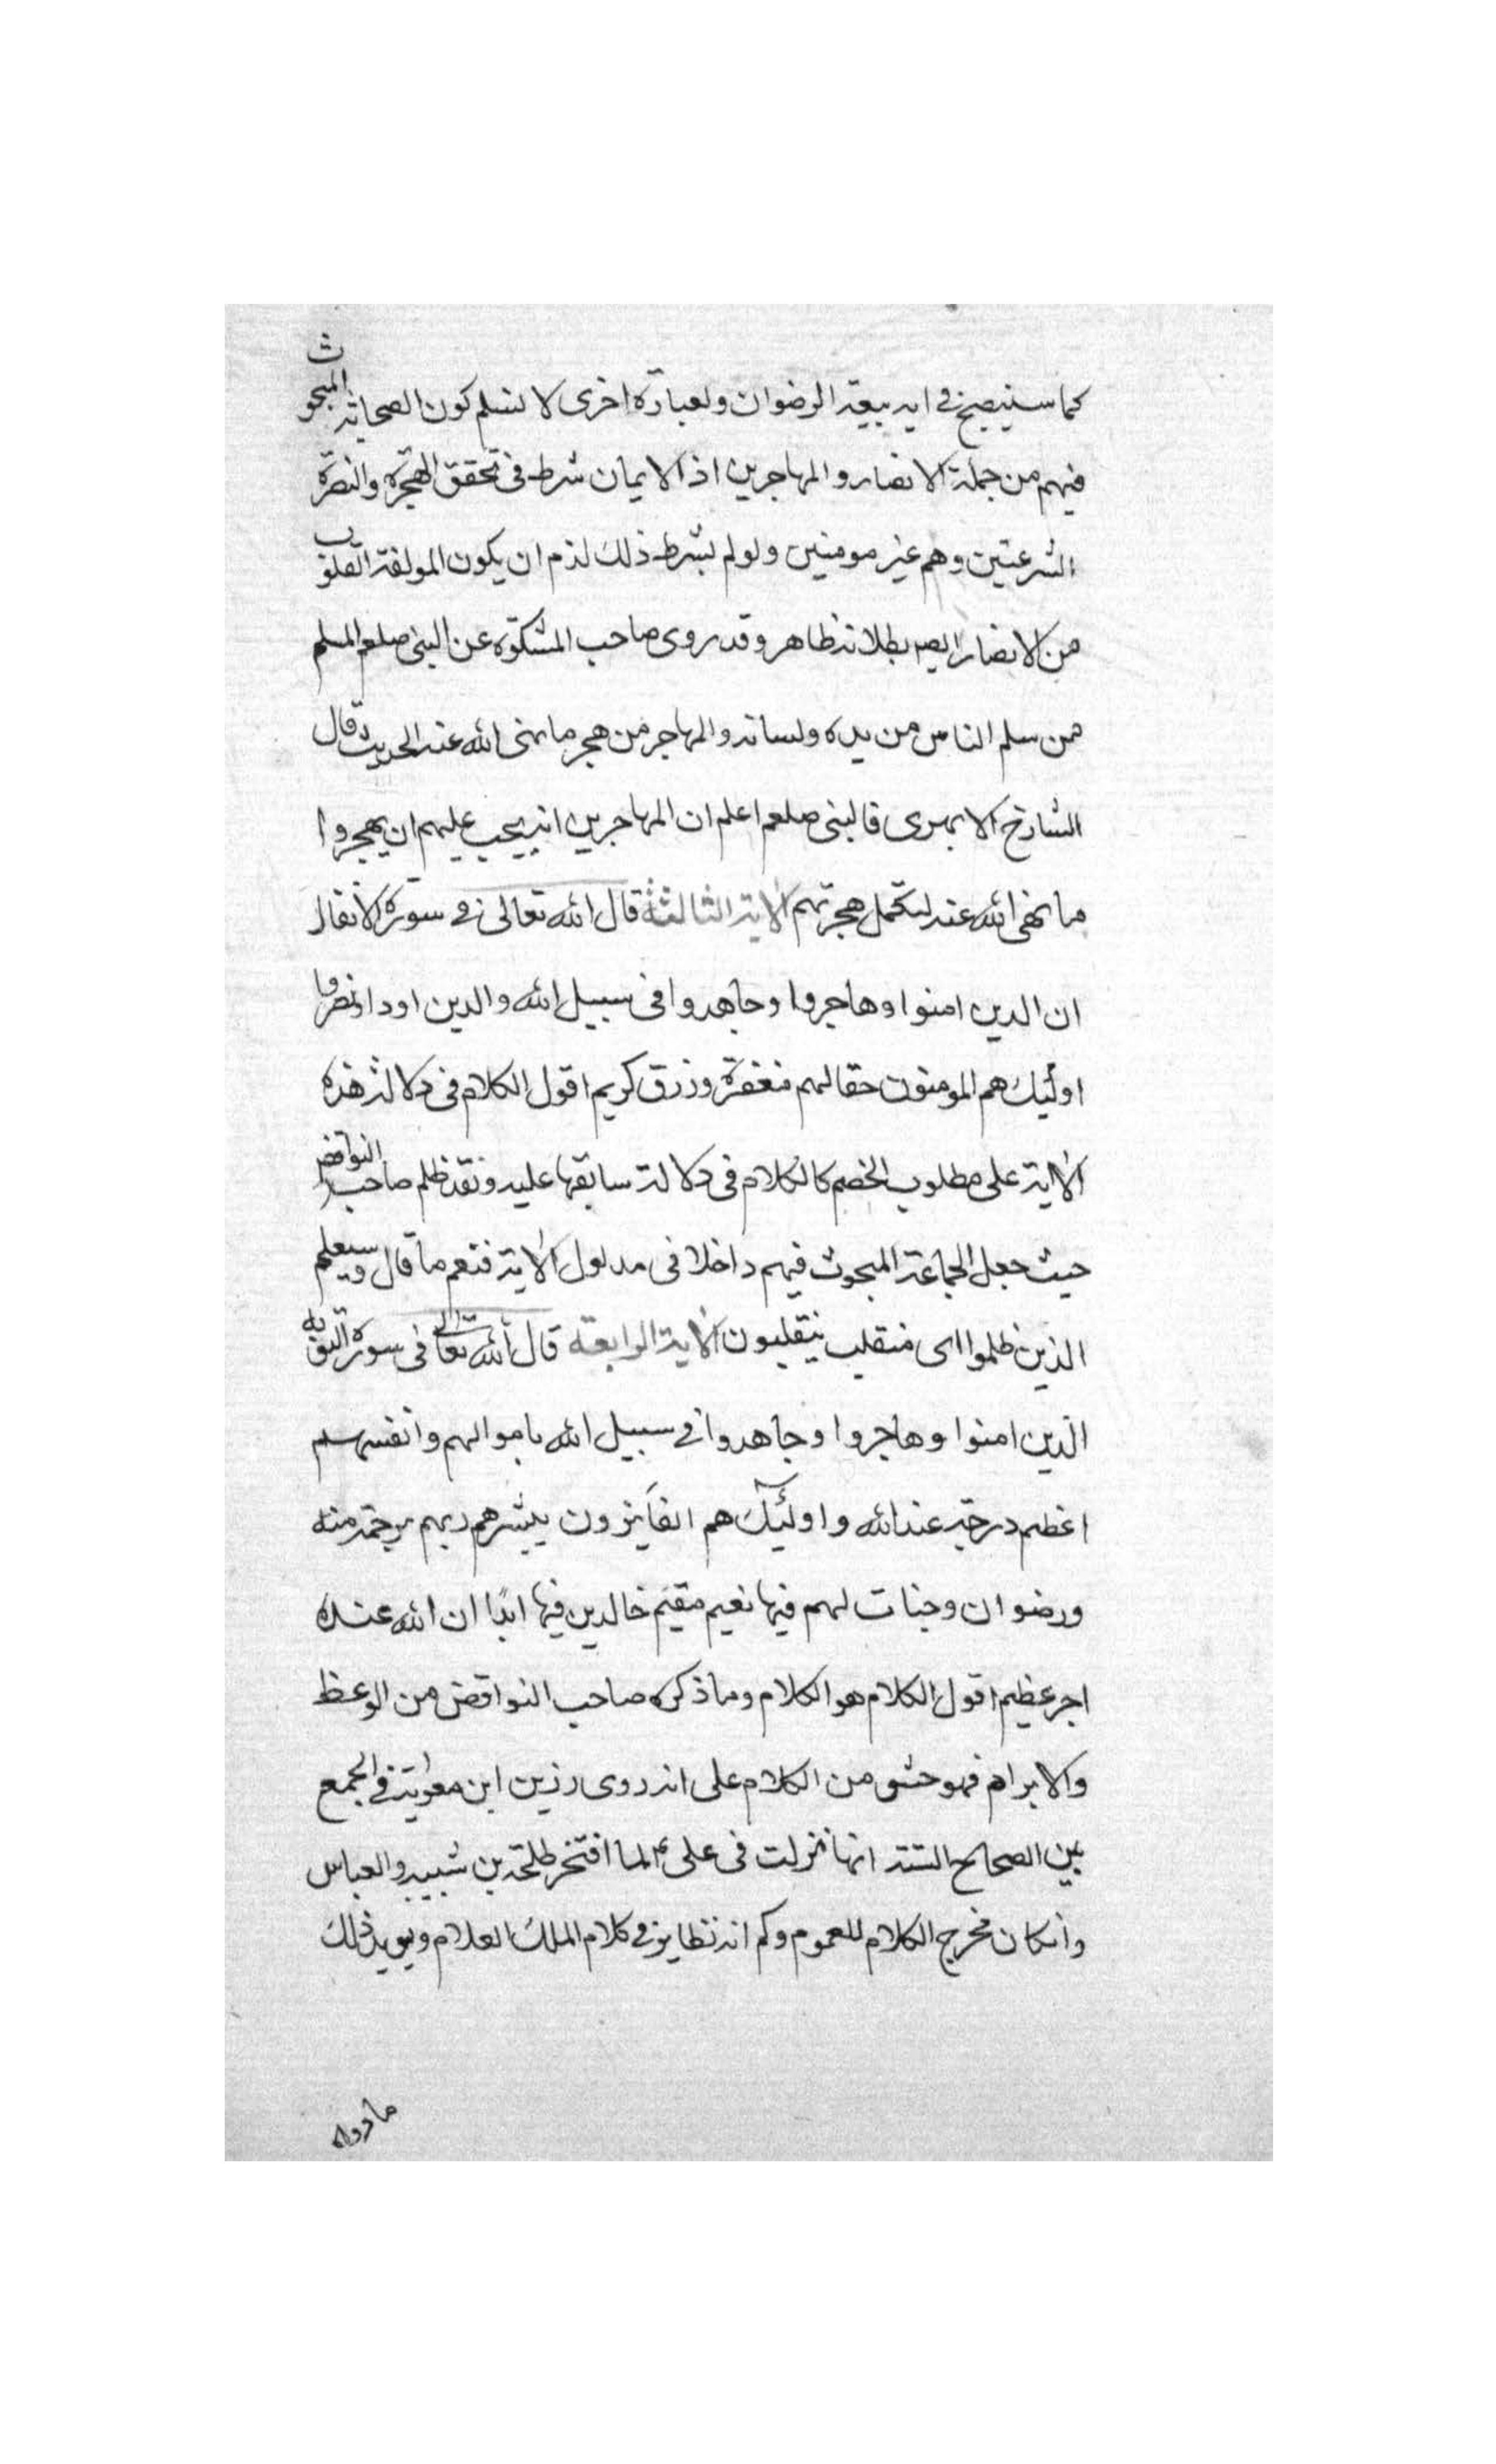 كما سيتضح في اية بيعة الرضوان وبعبارة اخرى لا نسلم كون الصحابة المبحوث
فيهم من جملة الانصار والمهاجرين اذ الايمان شرط في تحقق الهجرة والنصرة
الشرعيتين وهم غير مومنين ولو لم يشرط ذلك لزم ان يكون المولفة القلوب
من الانصار ايضا بطلانه ظاهر وقد روى صاحب المشكوة عن النبى صلعم المسلم
من سلم الناس من يده ولسانه والمهاجر من هجر ما نهى الله عنه الحديث قال
الشارح الابهرى فالنبى صلعم اعلم ان المهاجرين انه يجب عليهم ان يهجروا
ما نهى الله عنه لتكمل هجرتهم الاية الثالثة قال الله تعالى في سورة الانفال
ان الدين امنوا وهاجروا وجاهدوا فى سبيل الله والدين اووا ونصروا
اولئك هم المومنون حقا لهم مغفرة ورزق كريم اقول الكلام فى دلالة هذه
الاية على مطلوب الخصم كالكلام فى دلالة سابقها عليه ونقد ظلم صاحب النواقض
حيث جعل الجماعة المبحوث فيهم داخلا فى مدلول الاية فنعم ما قال وسيعلم
الذين ظلموا اى منقلب ينقلبون الاية الرابعة قال الله تعالى فى سورة التوبة
الذين امنوا وهاجروا وجاهدوا في سبيل الله باموالهم وانفسهم
اعظم درجة عند الله واولئك هم الفائزون يبشرهم ربهم برحمة منه
ورضوان وجنات لهم فيها نعيم مقيم خالدين فيها ابدًا ان الله عنده
اجر عظيم اقول الكلام هو الكلام وما ذكره صاحب النواقض من الوعظ
والابرام فهو حشو من الكلام على انه روى رزين ابن معوية في الجمع
بين الصحاح الستة انها نزلت فى على ع لما افتخر طلحة بن شيبه والعباس
وانكان مخرج الكلام للعموم وكم له نظاير في كلام الملك العلام ويويد ذلك
ما رواه